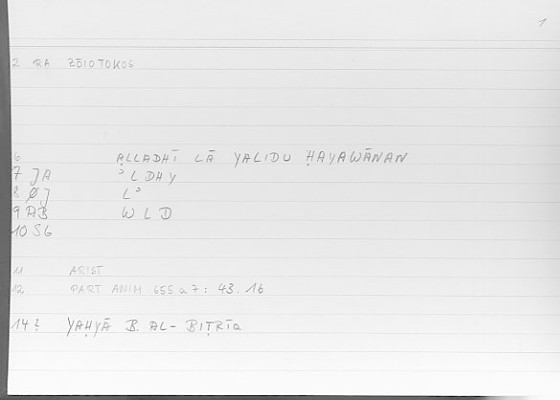 1
2 RA ZŌIOTOKOS
6 ALLADHĪ LĀ YALIDU ḤAYAWĀNAN
7 JA ʾLDHY
8 ØJ Lʾ
9 AB WLD
10 SG
11 ARIST
12 PART ANIM 655 a 7: 43.16
14 YAḤYĀ B. AL-BIṬRĪQ